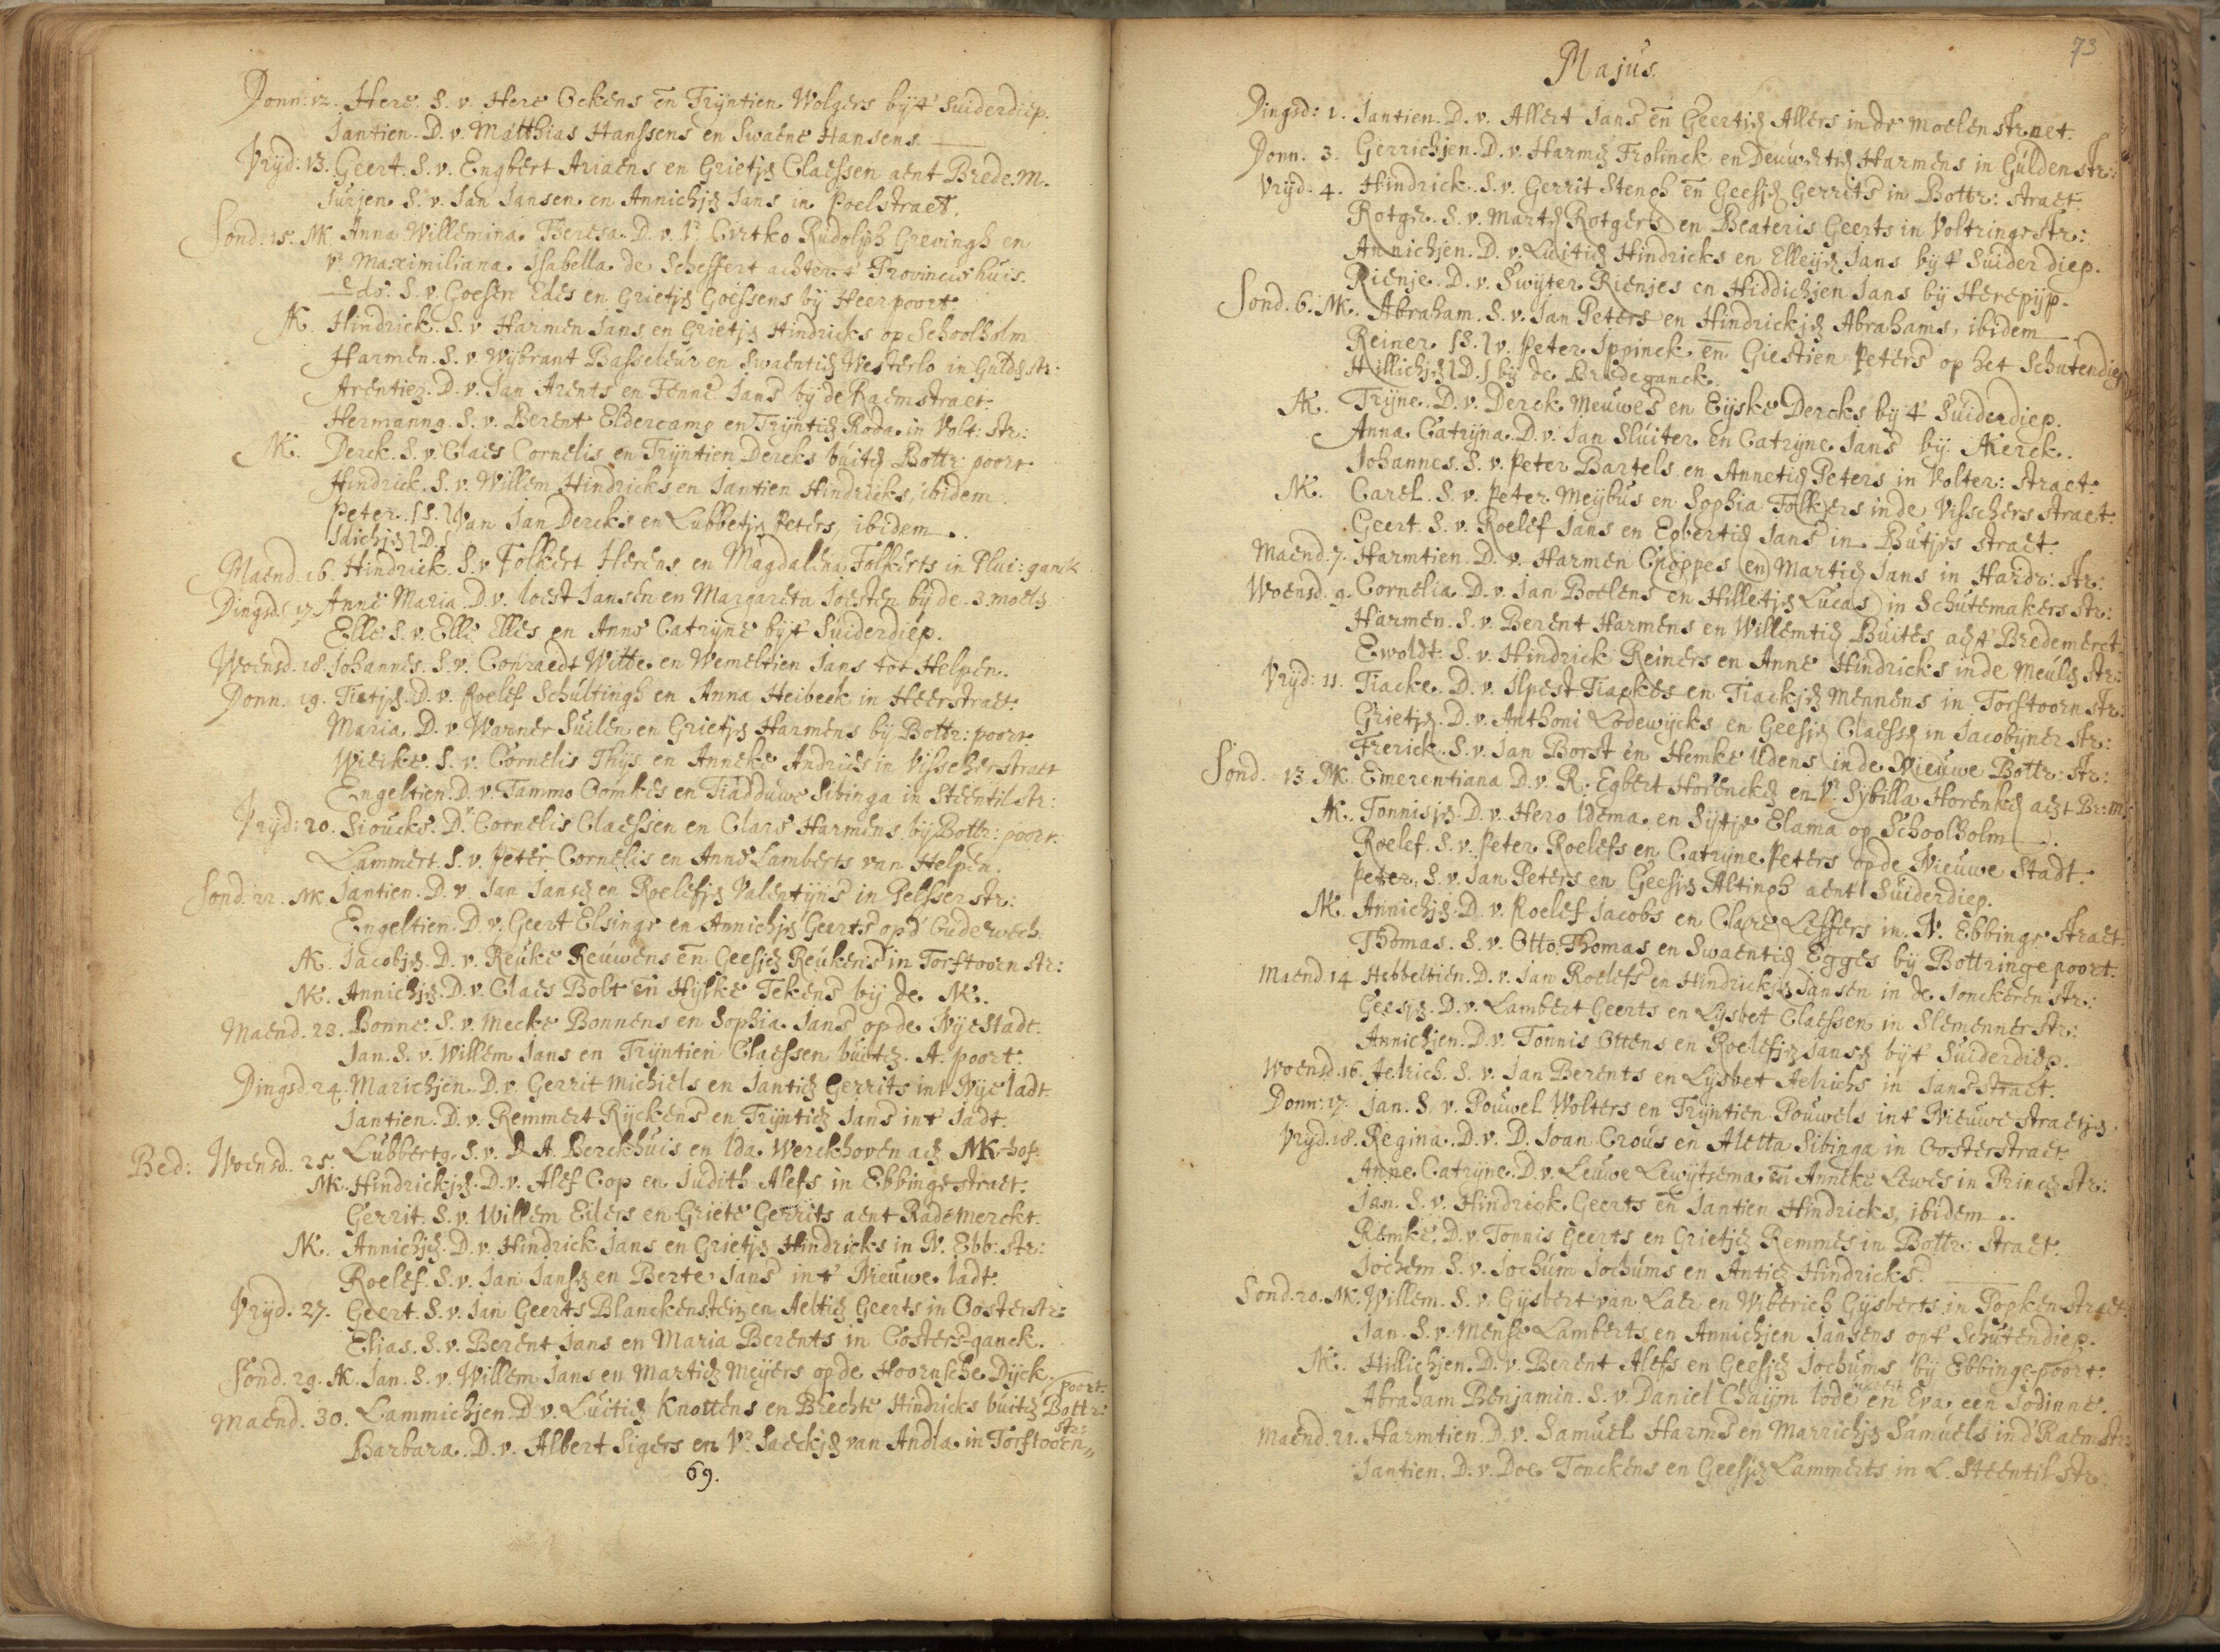 Donn: 12. Here. S. v. Here Ockens en Trijntien Wolgers bij't Suiderdiep.
Jantien. D. v. Matthias Hanssens en Swaene Hansens.
Vrijd: 13. Geert. S. v. Engbert Ariaens en Grietje Claessen aent Brede. M.
Jurjen. S. v. Jan Jansen en Annichje Jans in Poelstraet.
Sond: 15. MK Anna Willemina Theresa. D. v. Vr Cirtko Rudolph Grevingh en
Vr Maximiliana Isabella de Scheffert achter't Provincishuis.
Edo. S. v. Goesen Edes en Grietje Goessens bij Heerpoort.
AK. Hindrick. S. v. Harmen Jans en Grietje Hindricks op Schoolholm
Harmen. S. v. Wijbrant Basseleur en Swaentie Westerlo in Guld. str:
Arentien. D. v. Jan Arents en Fenne Jans bij de Raemstraet.
Hermanno. S. v. Berent Eldercamp en Trijntie Roda in Volt: str:
NK. Derck. S. v. Claes Cornelis en Trijntien Dercks buite Bottr: poort
Hindrick. S. v. Willem Hindricks en Jantien Hindricks, ibidem.
Peter. S. van Jan Dercks en Lubbetje Peters, ibidem.
Idichje D.
Maend. 16. Hindrick. S. v. Folkert Herens en Magdalena Folkerts in Plui: ganck
Dingsd. 17. Anne Maria. D. v. Joest Jansen en Margareta Joesten bij de. 3. moels
Elle. S. v. Elle Elles en Anne Catrijne bij't Suiderdiep.
Woensd. 18. Johannes. S. v. Conraedt Witte en Wemeltien Jans tot Helpen.
Donn. 19. Tietje. D. v. Roelef Schultingh en Anna Heibeek in Heerstraet.
Maria. D. v. Warner Suilen en Grietje Harmens bij Bottr: poort.
Wieike. S. v. Cornelis Thijs en Anneke Andries in Visscherstraet
Engeltien. D. v. Tammo Oomkes en Tiadduwe Sibinga in Steentilstr:
Vrijd: 20. Sioucke. D. v. Cornelis Claessen en Clare Harmens bij Bottr: poort.
Lammert. S. v. Peter Cornelis en Anne Lamberts van Helpen.
Sond: 22. MK Jantien. D. v. Jan Janse en Roelefje Valentijns in Pelsser str:
Engeltien. D. v. Geert Elsinge en Annichje Geerts op d' Oudewech
AK. Jacobje. D. v. Reuke Reuwens en Geesje Reukens in Torftoorn str:
NK. Annichje. D. v. Claes Bolt en Hijlke Tekens bij de NK.
Maend. 23. Bonne. S. v. Mecke Bonnens en Sophia Jans op de Nijestadt.
Jan. S. v. Willem Jans en Trijntien Claessen buite. A. poort.
Dingsd. 24. Marichjen. D. v. Gerrit Michiels en Jantie Gerrits int Nije Jadt.
Jantien. D. v. Remmert Rijckens en Trijntie Jans in't Jadt.
Bed: Woensd. 25. Lubberto. S. v. D. A. Berckhuis en Ida Werckhoven ae MK-hof.
MK. Hindrickje. D. v. Alef Cop en Judith Alefs in Ebbingestraet.
Gerrit. S. v. Willem Eilers en Griete Gerrits aent Rademerckt.
NK. Annichje. D. v. Hindrick Jans en Grietje Hindricks in N. Ebb: str:
Roelef. S. v. Jan Janse en Berte Jans in't Nieuwe Jadt.
Vrijd. 27. Geert. S. v. Jan Geerts Blanckenstein en Aeltie Geerts in Oosterstr:
Elias. S. v. Berent Jans en Maria Berents in Costers-ganck.
Sond. 29. AK. Jan. S. v. Willem Jans en Martie Meijers op de Hoornsche Dijck.
Maend. 30. Lammichjen. D. v. Luitie Knottens en Brechte Hindricks buite Bottr: poort.
Barbara. D. v. Albert Sigers en Vr Saeckje van Andla in Torftoorn str:
69.
73
Majus.
Dingsd: 1. Jantien. D. v. Allert Jans en Geertie Allers in de Moelenstraet.
Donn. 3. Gerrichjen. D. v. Harme Frolinck en Deuwertie Harmens in Guldenstr:
Vrijd. 4. Hindrick. S. v. Gerrit Stengh en Geesje Gerrits in Bottr: straet.
Rotger. S. v. Marte Rotgers en Beateris Geerts in Voltringestr:
Annichjen. D. v. Luitie Hindricks en Elleije Jans bij't Suiderdiep.
Rienje. D. v. Swijter Rienjes en Hiddichjen Jans bij Herepijp.
Sond. 6. MK. Abraham. S. v. Jan Peters en Hindrickje Abrahams, ibidem
Reiner. S. v. Peter Ippinck en Giestien Peters op het Schutendiep
Hillichje D. bij de Bredeganck.
AK. Trijne. D. v. Derck Meuwes en Eijske Dercks bij't Suiderdiep.
Anna Catrijna. D. v. Jan Sluiter en Catrijne Jans bij AKerck.
Johannes. S. v. Peter Bartels en Annetie Peters in Volter: straet.
NK. Carel. S. v. Peter Meijbus en Sophia Folkers in de Visschers straet.
Geert. S. v. Roelef Jans en Egbertie Jans in Butjes straet.
Maend. 7. Harmtien. D. v. Harmen Choppes en Martie Jans in Haidr: str:
Woensd. 9. Cornelia. D. v. Jan Boelens en Hilletje Lucas in Schutemakers str:
Harmen. S. v. Berent Harmens en Willemtie Buites ae't Bredemerct
Ewoldt. S. v. Hindrick Reiners en Anne Hindricks in de Meule str:
Vrijd: 11. Tiacke. D. v. Ilpest Tiackes en Tiackje Mennens in Torftoorn str:
Grietje. D. v. Anthoni Lodewijcks en Geesje Claesse in Jacobijner str:
Frerick. S. v. Jan Borst en Hemke Udens in de Nieuwe Bottr: str:
Sond. 13. MK. Emerentiana. D. v. R: Egbert Horencke en Vr Sijbilla Horenke aent Br: m:
AK. Tonnisje. D. v. Hero Idema en Sijtje Elama op Schoolholm
Roelef. S. v. Peter Roelefs en Catrijne Peters op de Nieuwe Stadt.
Peter. S. v. Jan Peters en Geesje Altingh aent Suiderdiep.
NK. Annichje. D. v. Roelef Jacobs en Clare Leffers in N. Ebbinge straet.
Thomas. S. v. Otto Thomas en Swaentie Egges bij Bottringepoort.
Maend. 14 Hebbeltien. D. v. Jan Roelefs en Hindrickje Jansen in de Jonckeren str:
Geesje. D. v. Lambert Geerts en Lijsbet Claessen in Slemenner str:
Annichjen. D. v. Tonnis Ottens en Roelefje Janse bij't Suiderdiep.
Woensd. 16. Aelrich. S. v. Jan Berents en Lijsbet Aelrichs in Jansstraet.
Donn: 17. Jan. S. v. Pouwel Wolters en Trijntien Pouwels int Nieuwe straetje.
Vrijd. 18. Regina. D. v. D. Joan Crous en Aletta Sibinga in Oosterstraet.
Anne Catrijne. D. v. Leuwe Lewijtsema en Anneke Lewes in Prince str:
Jan. S. v. Hindrick Geerts en Jantien Hindricks, ibidem.
Remke. D. v. Tonnis Geerts en Grietje Remmes in Bottr: straet.
Jochem. S. v. Jochum Jochums en Antie Hindricks.
Sond. 20. MK. Willem. S. v. Gijsbert van Laer en Wiberich Gijsberts in Popkenstraet.
Jan. S. v. Mense Lamberts en Annichjen Jansens op't Schutendiep.
NK. Hillichjen. D. v. Berent Alefs en Geesje Jochums bij Ebbinge-poort.
Abraham Benjamin. S. v. Daniel Chaijm Jode en Eva een Jodinne.
Maend. 21. Harmtien. D. v. Samuel Harms en Marrichje Samuels in d' Raemstr:
Jantien. D. v. Doe Tonckens en Geesje Lammerts in L. Steentilstr: